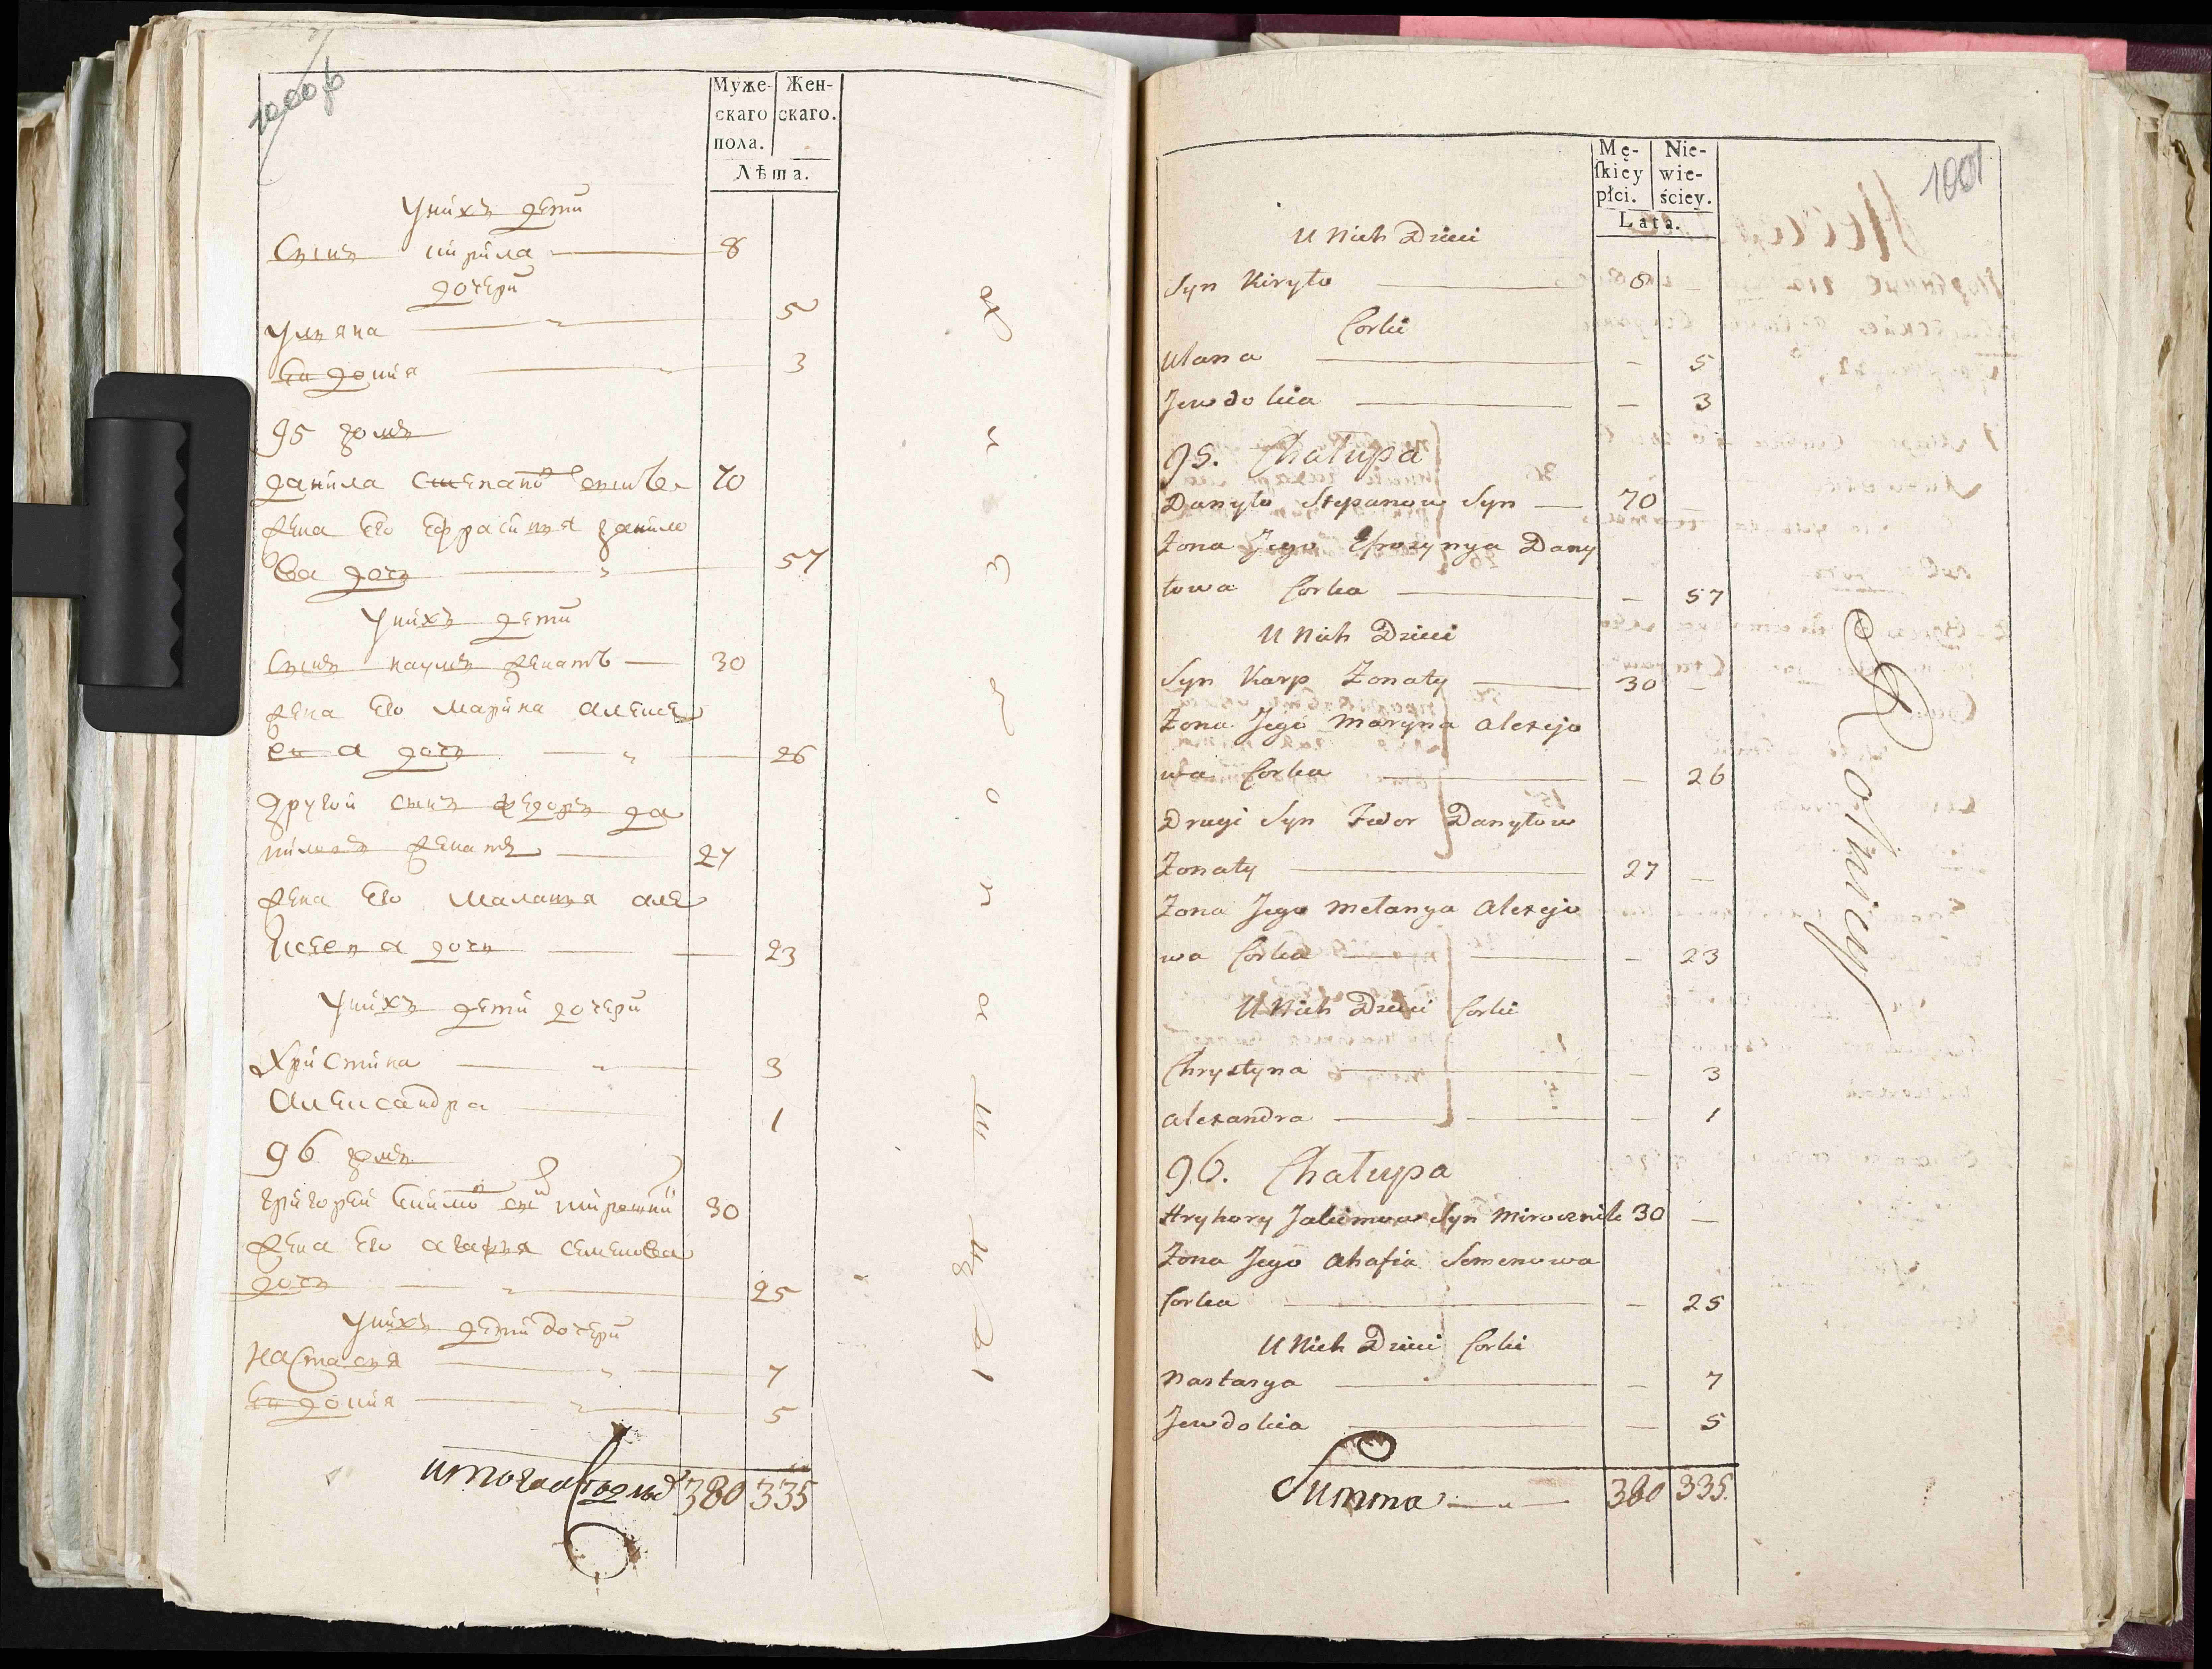 1000об
Муже-
скаго
пола.
Жен-
скаго.
Лѣта.
У нихъ дети
Сынъ кирила 8
дочери
Ульяна 5
Евдокия 3
95 домъ
данила степановъ сынъ 70
жена его ефрасиния данило
ва дочь 57
У нихъ дети
Сынъ карпъ женатъ 30
жена его марина алексе
ева дочь 26
другой сынъ федоръ да
ниловъ женатъ 27
жена его маланья але
ксеева дочь 23
У нихъ дети дочери
Христина 3
Александра 1
96 домъ
григорей екимовъ сынъ мирошник 30
жена его агафья семенова
дочь 25
У нихъ дети дочери
Настасья 7
Евдокия 5
380 335
1001
Mę-
ſkiey
płci.
Nie-
wie-
ściey.
Lata.
U Nich Dzieci
Syn Kiryło 8
Corki
Ulana – 5
Jewdokia – 3
95. Chałupa
Danyło Stepanow Syn 70 –
Żona Jego Efrozynya Dany
łowa Corka – 57
U Nich Dzieci
Syn Karp Żonaty 30 –
Żona Jego Maryna Alexejo
wa Corka – 26
Drugi Syn Fedor Danyłow
Żonaty 27 –
Żona Jego Melanya Alexejo
wa Corka – 23
U Nich Dzieci Corki
Chrystyna – 3
Alexandra – 1
96. Chałupa
Hryhory Jakimow Syn Mirosznik 30 –
Żona Jego Ahafia Semenowa
Corka – 25
U Nich Dzieci Corki
Nastasya – 7
Jewdokia – 5
Summa 380 335.